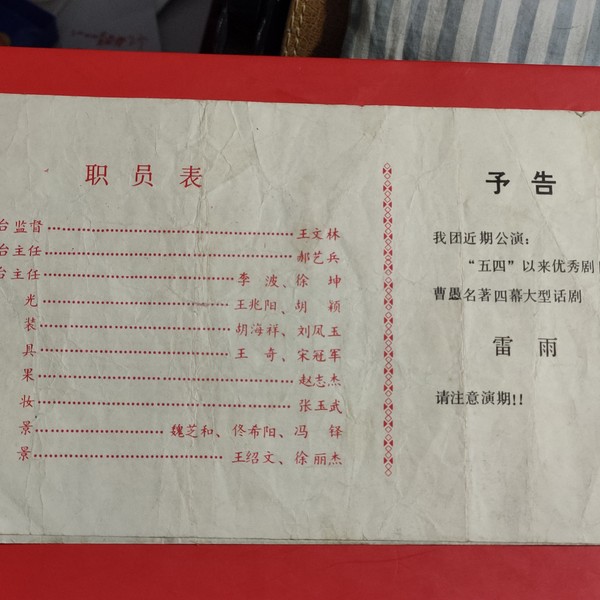 职员表
台监督 王文林
台主任 郝艺兵
台主任 李波、徐坤
光 王兆阳、胡颖
装 胡海祥、刘凤玉
具 王奇、宋冠军
果 赵志杰
妆 张玉武
景 魏芝和、佟希阳、冯铎
景 王绍文、徐丽杰
予告
我团近期公演：
“五四”以来优秀剧目
曹愚名著四幕大型话剧
雷雨
请注意演期!!